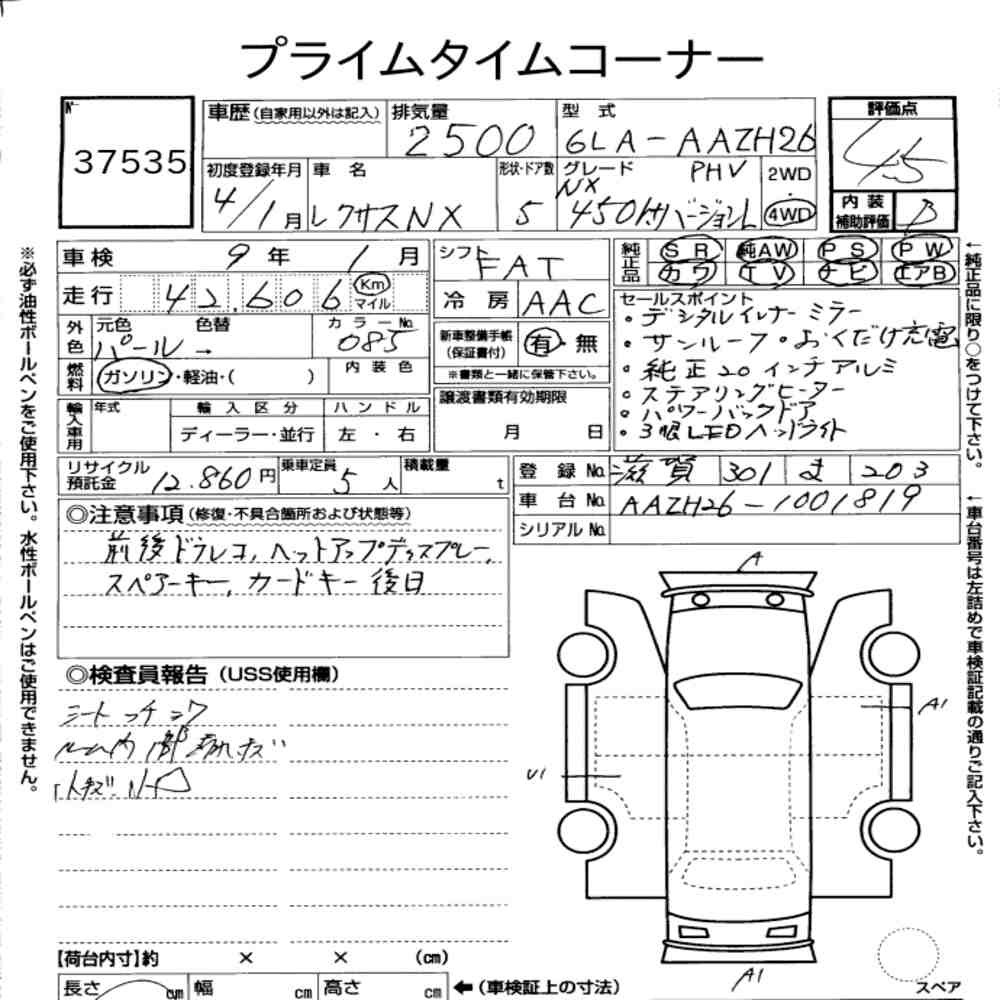 プライムタイムコーナー
No 37535
車歴(自家用以外は記入) 排気量 2500 型 式 6LA-AAZH26
評価点 4.5
初度登録年月 4/1月 車 名 レクサスNX 形状・ドア数 5 グレード NX PHV 450h+バージョンL 2WD 4WD
内 装 補助評価 B
車検 9年 1月
シフト FAT
純正品 SR 純AW PS PW
カワ TV ナビ エアB
走行 42.606 Km マイル
冷 房 AAC
外色 元色 パール→ 色替 カラーNo. 085
燃料 ガソリン・軽油・( ) 内 装 色
新車整備手帳(保証書付) 有・無
※書類と一緒に保管下さい。
輸入車用 年式 輸 入 区 分 ハ ン ド ル
ディーラー・並行 左 ・ 右
譲渡書類有効期限
月 日
セールスポイント
・デジタルインナーミラー
・サンルーフ ・おくだけ充電
・純正20インチアルミ
・ステアリングヒーター
・パワーバックドア
・3眼LEDヘッドライト
リサイクル預託金 12.860円 乗車定員 5人 積載量 t
登 録 No. 滋賀 301 ま 203
車 台 No. AAZH26-1001819
シリアル No.
◎注意事項(修復・不具合箇所および状態等)
前後ドラレコ,ヘッドアップディスプレー,
スペアーキー,カードキー後日
◎検査員報告(USS使用欄)
シート
ルーム内
A
A1
U1
A1
スペア
【荷台内寸】約 × × (cm)
長さ cm 幅 cm 高さ cm ←(車検証上の寸法)
※必ず油性ボールペンをご使用下さい。水性ボールペンはご使用できません。
←純正品に限り○をつけて下さい。
←車台番号は左詰めで車検証記載の通りご記入下さい。